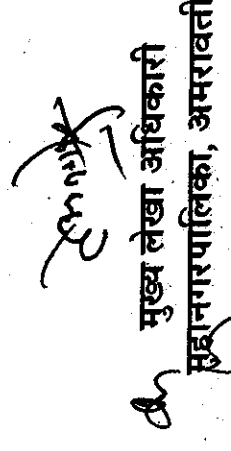 मुख्य लेखा अधिकारी
महानगरपालिका, अमरावती